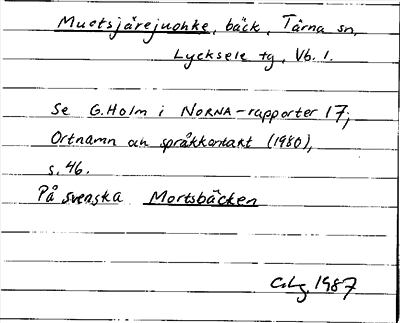 Muotsjårejuohke, bäck, Tärna sn,
Lycksele tg, Vb. l.
Se G. Holm i NORNA-rapporter 17;
Ortnamn och språkkontakt (1980),
s. 46.
På svenska Mortsbäcken
1987